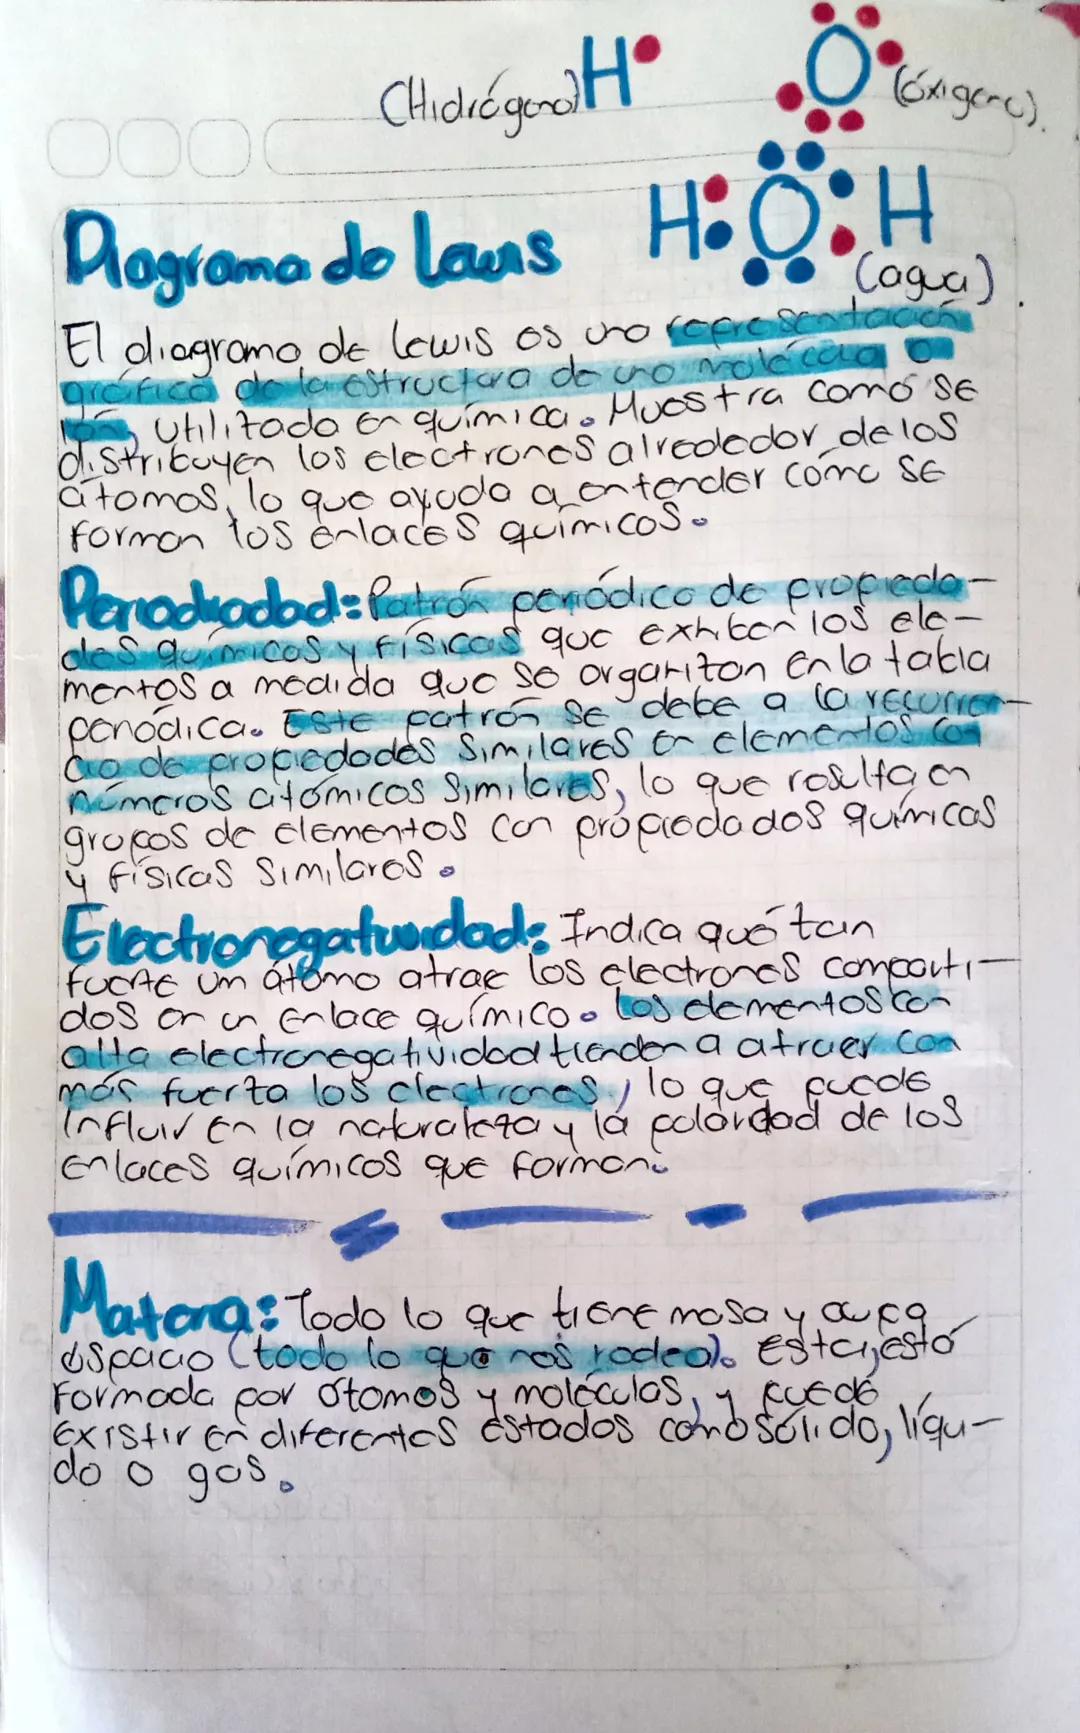 (Hidrógeno) H O (óxigeno).
H O H
(agua)
Diagrama de Lewis
El diagrama de Lewis es una representación
gráfica de la estructura de una molécula o
ión, utilizado en química. Muestra como se
distribuyen los electrones alrededor de los
átomos, lo que ayuda a entender cómo se
forman los enlaces químicos.
Periodicidad: Patrón periódico de propieda-
des químicas y físicas que exhiben los ele-
mentos a medida que se organizan en la tabla
periódica. Este patrón se debe a la recurren-
cia de propiedades similares en elementos con
números atómicos similares, lo que resulta en
grupos de elementos con propiedades químicas
y físicas similares.
Electronegatividad: Indica qué tan
fuerte um átomo atrae los electrones comparti-
dos en un enlace químico. Los elementos con
alta electronegatividad tienden a atraer con
más fuerza los electrones, lo que puede
influir en la naturaleza y la polaridad de los
enlaces químicos que forman.
Materia: Todo lo que tiene masa y ocupa
espacio (todo lo que nos rodea). Esta, está
formada por átomos y moléculas, y puede
existir en diferentes estados como sólido, líqui-
do o gas.